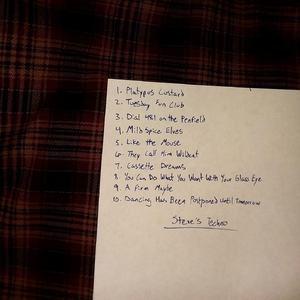 1. Platypus Custard
2. Tuesday Fun Club
3. Dial 481 on the Penfield
4. Mild Spice Elves
5. Like the Mouse
6. They Call Him Wildcat
7. Cassette Dreams
8. You Can Do What You Want With Your Glass Eye
9. A Firm Maybe
10. Dancing Has Been Postponed Until Tomorrow
Steve's Techno